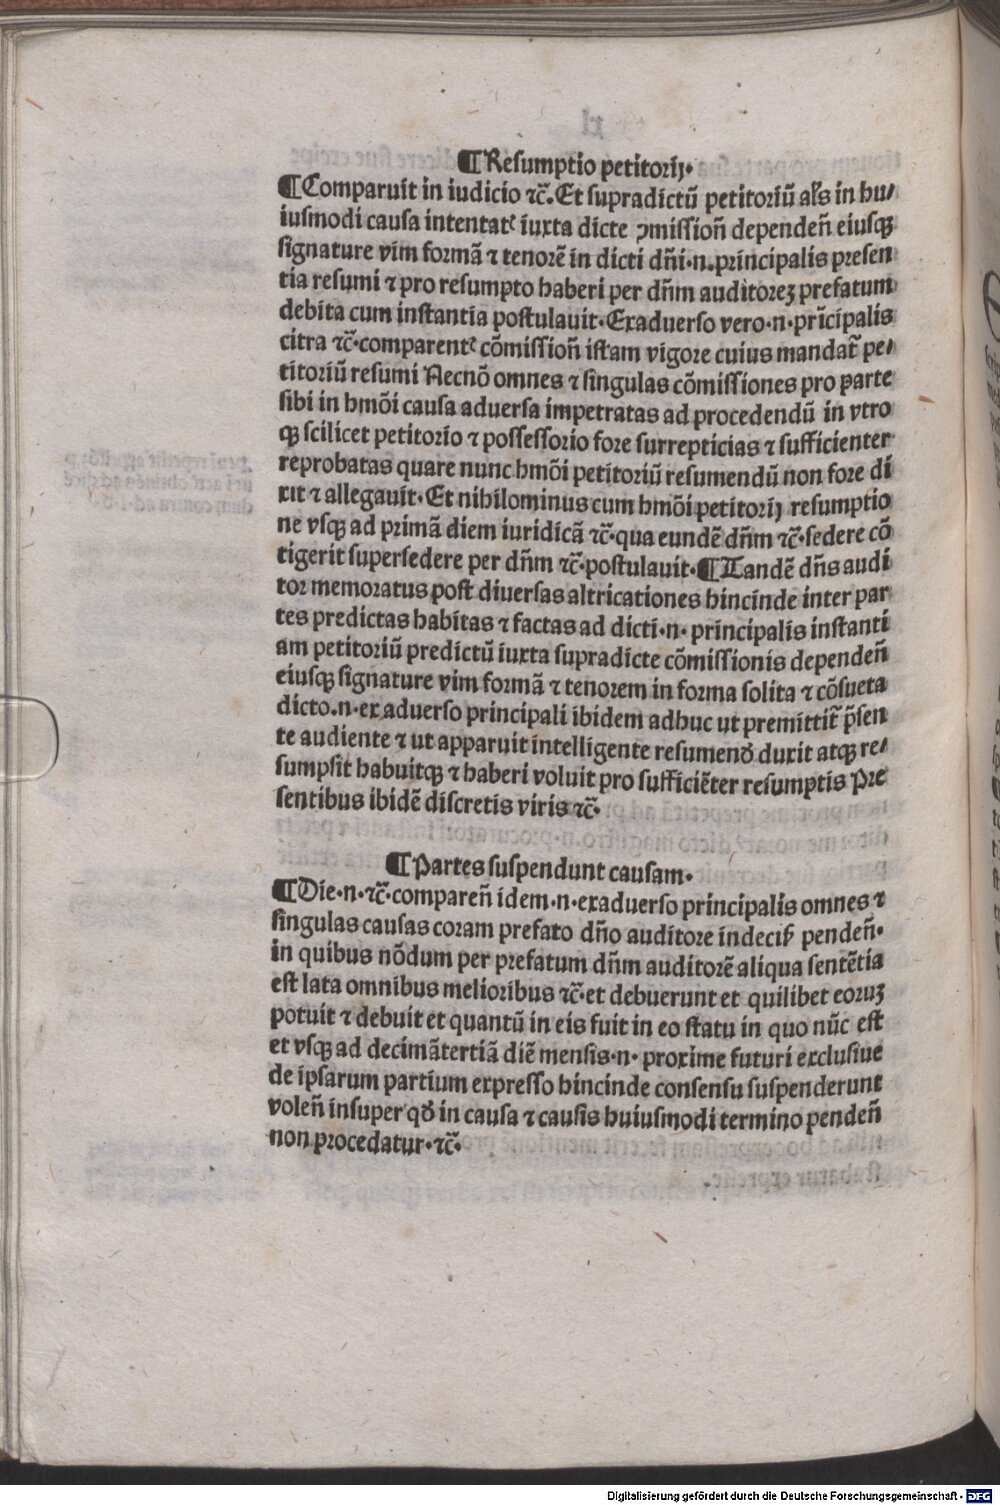 ¶Resumptio petitorij.
¶Comparuit in iudicio ⁊c̃. Et supradictū petitoriū al's in hu/
iusmodi causa intentatꝰ iuxta dicte ꝯmissioñ dependeñ eiusqꝫ
signature vim formã ⁊ tenorẽ in dicti dñi.n. principalis presen
tia resumi ⁊ pro resumpto haberi per dñm auditoreꝫ prefatum
debita cum instantia postulauit. Exaduerso vero.n. prĩcipalis
citra ⁊c̃. comparentꝭ cõmissioñ istam vigore cuius mandat̃ pe/
titoriū resumi Necnõ omnes ⁊ singulas cõmissiones pro parte
sibi in hmõi causa aduersa impetratas ad procedendū in vtro
qꝫ scilicet petitorio ⁊ possessorio fore surrepticias ⁊ sufficienter
reprobatas quare nunc hmõi petitoriū resumendū non fore di
xit ⁊ allegauit. Et nihilominus cum hmõi petitorij resumptio
ne vsqꝫ ad primã diem iuridicã ⁊c̃. qua eundẽ dñm ⁊c̃. sedere cõ
tigerit supersedere per dñm ⁊c̃. postulauit. ¶Tandẽ dñs audi
tor memoratus post diuersas altricationes hincinde inter par
tes predictas habitas ⁊ factas ad dicti.n. principalis instanti
am petitoriū predictū iuxta supradicte cõmissionis dependeñ
eiusqꝫ signature vim formã ⁊ tenorem in forma solita ⁊ cõsueta
dicto.n. ex aduerso principali ibidem adhuc ut premittit̃ p̃sen
te audiente ⁊ ut apparuit intelligente resumenđ duxit atqꝫ re/
sumpsit habuitqꝫ ⁊ haberi voluit pro sufficiẽter resumptis Pre
sentibus ibidẽ discretis viris ⁊c̃.
¶Partes suspendunt causam.
¶Die.n. ⁊c̃. compareñ idem.n. exaduerso principalis omnes ⁊
singulas causas coram prefato dño auditore indecis̃ pendeñ.
in quibus nõdum per prefatum dñm auditorẽ aliqua sentẽtia
est lata omnibus melioribus ⁊c̃. et debuerunt et quilibet eoruꝫ
potuit ⁊ debuit et quantū in eis fuit in eo statu in quo nūc est
et vsqꝫ ad decimãtertiã diẽ mensis.n. proxime futuri exclusiue
de ipsarum partium expresso hincinde consensu suspenderunt
voleñ insuper qđ in causa ⁊ causis huiusmodi termino pendeñ
non procedatur. ⁊c̃.
Digitalisierung gefördert durch die Deutsche Forschungsgemeinschaft - DFG